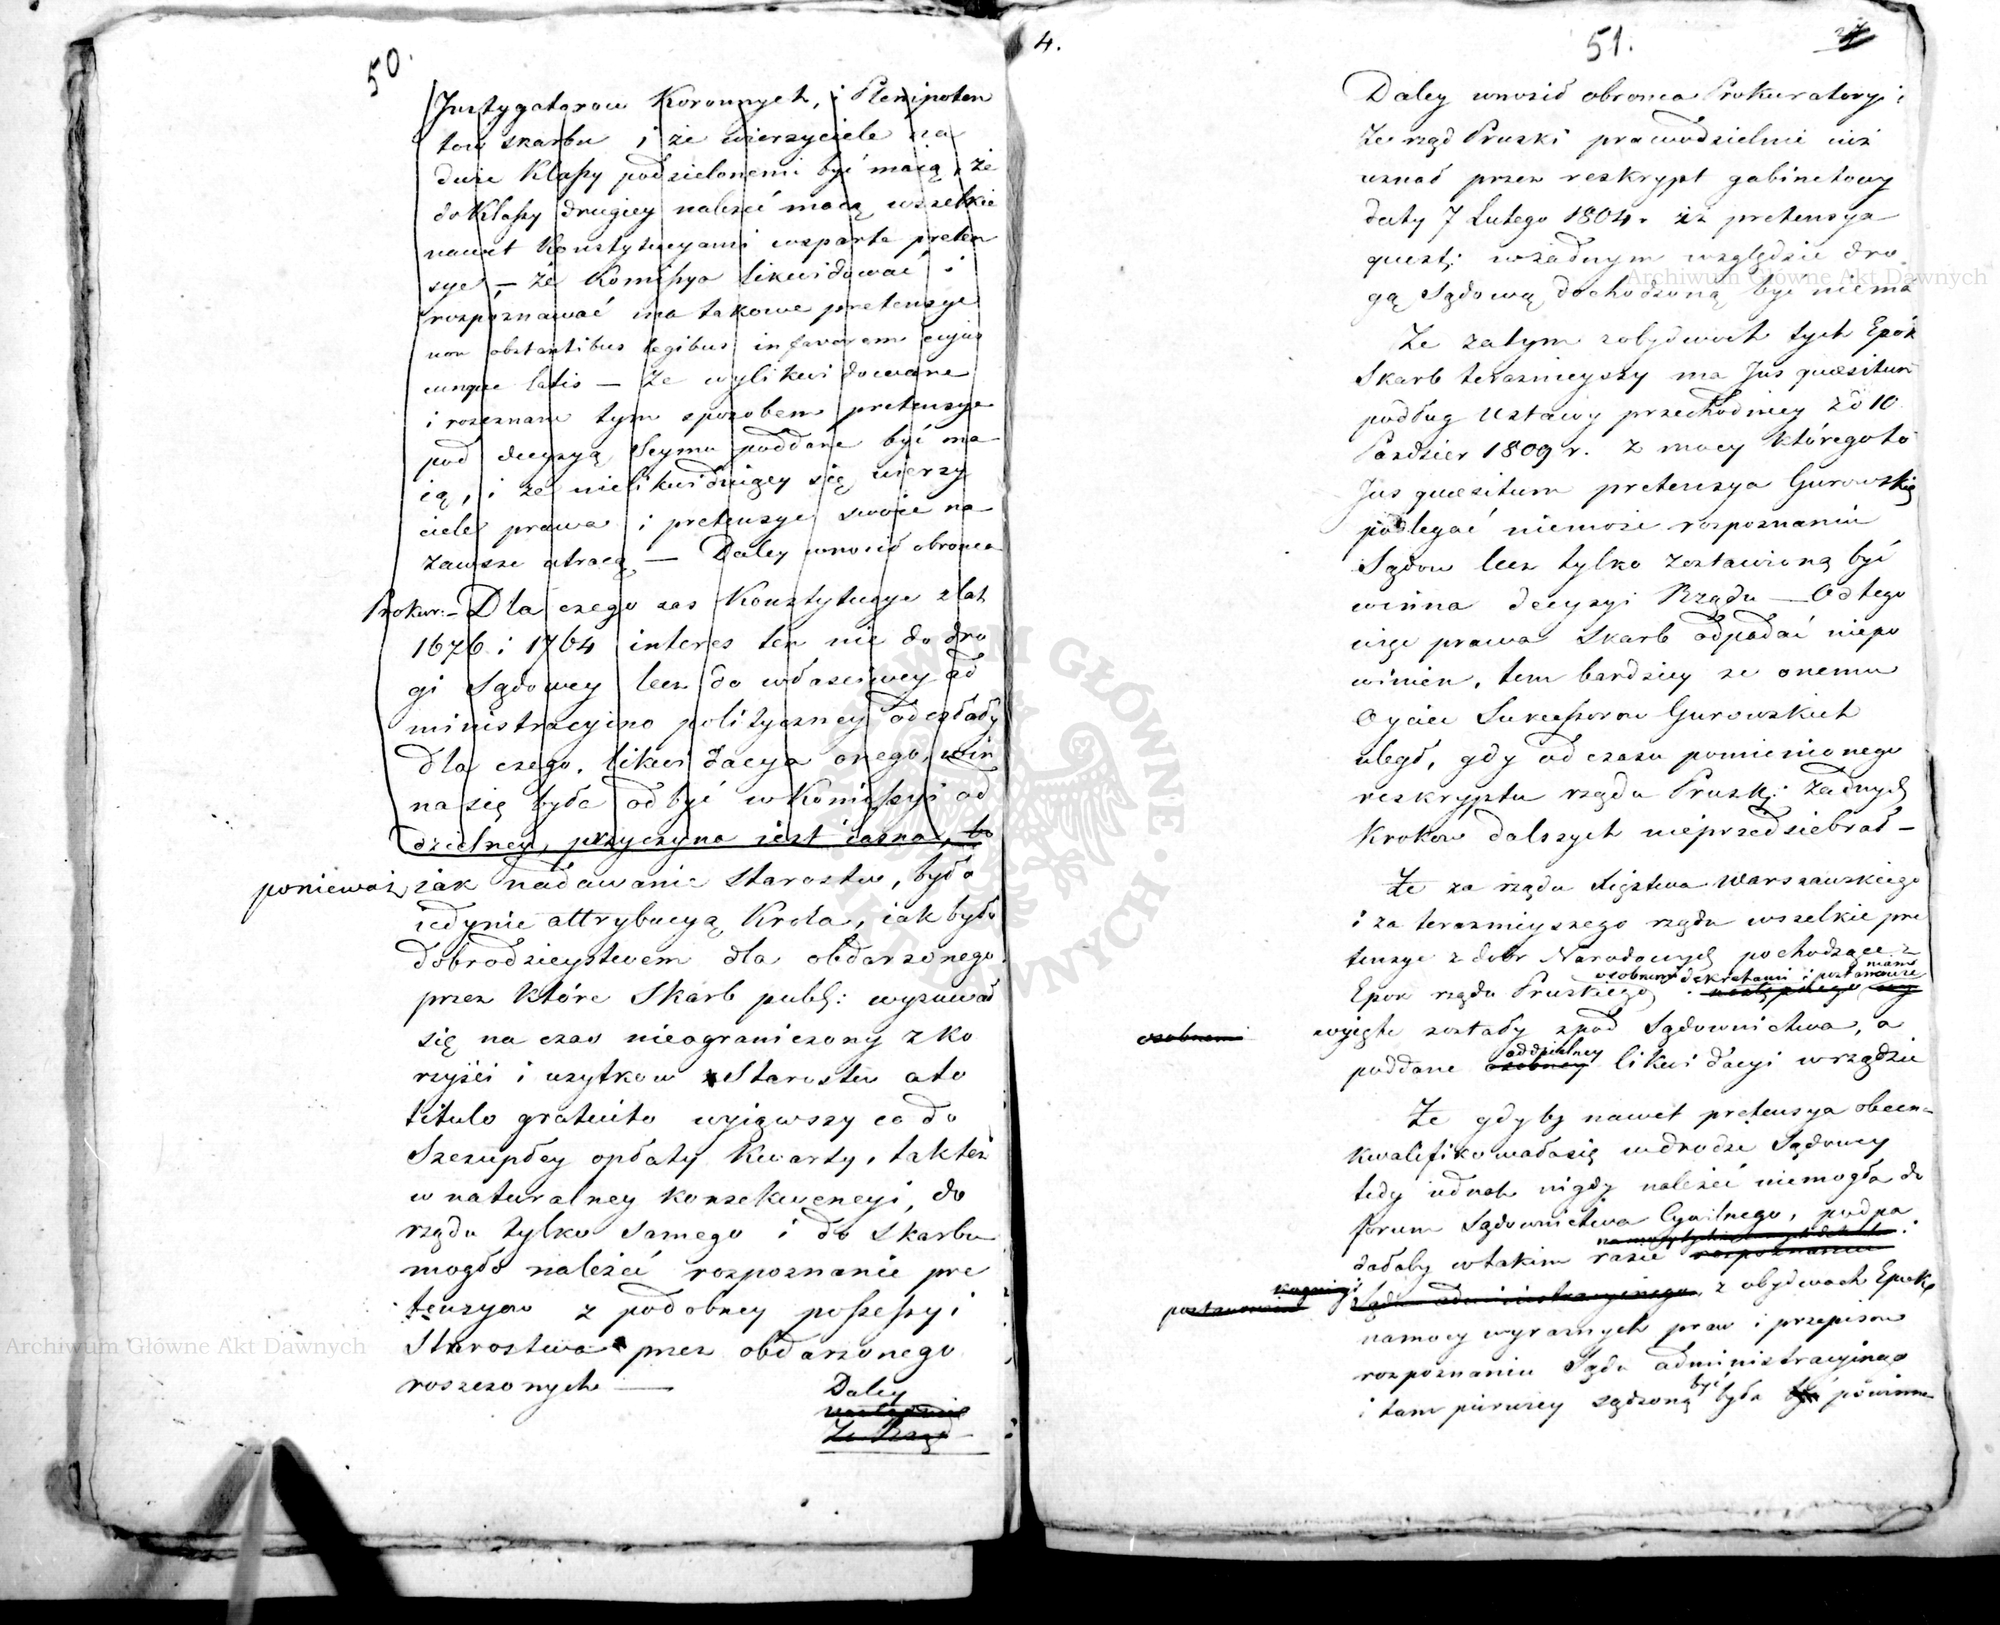 50.
Instygatorow Koronnych, i Plenipoten
tow skarbu, i że wierzyciele na
dwie Klassy podzielonemi być maią, że
do Klassy drugiey należeć maią wszelkie
nawet Konstytucyami wsparte preten
sye, – że Komissya likwidować i
rozpoznawać ma takowe pretensye
non obstantibus legibus in favorem cujus
cunque latis – że wylikwidowane
i rozeznane tym sposobem pretensye
pod decyzyą Seymu poddane być ma
ią, i że nielikwiduiący się wierzy
ciele prawa i pretensye swoie na
zawsze utracą – Daley wnosił obronca
Prokur: – Dla czego zas Konstytucye z lat
1676 i 1764 interes ten nie do dro
gi Sądowey lecz do właściwey ad
ministracyino polityczney odesłały
dla czego, likwidacya onego, win
na się była odbyć w Komissyi od
dzielney, przyczyna iest iasna, bo
ponieważ iak nadawanie Starostw, było
iedynie attrybucyą Króla, iak było
dobrodzieystwem dla obdarzonego
przez które Skarb publ: wyzuwał
się na czas nieograniczony z ko
rzyści i uzytkow Starostw a to
titulo gratuito wyiąwszy co do
Szczupłey opłaty Kwarty, tak też
w naturalney konsekwencyi, do
rządu tylko samego i do skarbu
mogło należeć rozpoznanie pre
tensyow z podobney possessyi
Starostwa przez obdarzonego
roszczonych –
Daley
Ze Rząd
4.
51.
Daley wnosił obronca Prokuratoryi
że rząd Pruski prawodzielnie iuż
uznał przez reskrypt gabinetowy
daty 7 Lutego 1804 r. iż pretensya
quest: w żadnym względzie dro
gą Sądową dochodzoną być niema
Że zatym z obydwoch tych Epok
Skarb teraznieyszy ma Jus quæsitum
podług Ustawy przechodniey z d 10
Pazdzier 1809 r. z mocy którego to
Jus quæsitum pretensya Gurowskich
podlegać niemoże rozpoznaniu
Sądow lecz tylko zostawioną być
winna decyzyi Rządu – Od tego
więc prawa Skarb odpadać niepo
winien, tem bardziey ze onemu
Oyciec Sukcessorow Gurowskich
uległ, gdy od czasu pomienionego
reskryptu rządu Prusk: żadnych
Krokow dalszych nieprzedsiebrał –
Że za rządu Xięztwa Warszawskiego
i za teraznieyszego rządu wszelkie pre
tensye z dobr Narodowych pochodzące z
osobnemi dekretami i postanowie
niami
Epok rządu Pruskiego
osobnemi
wyięte zostały z pod Sądownictwa, a
oddzielney
poddane osobney likwidacyi w rządzie
Że gdyby nawet pretensya obecn-
kwalifikowała się w drodze Sądowey
tedy iednak nigdy należeć niemogła do
forum Sądownictwa Cywilnego, podpa
dałaby w takim razie rozpoznaniu
Sądu administracyinego, z obydwoch Epok
na mocy wyraznych praw i przepisow
rozpoznaniu Sądu administracyinego
być
i tam pierwey sądzoną była być powinna
Archiwum Główne Akt Dawnych
Archiwum Główne Akt Dawnych
ARCHIWUM GŁÓWNE AKT DAWNYCH